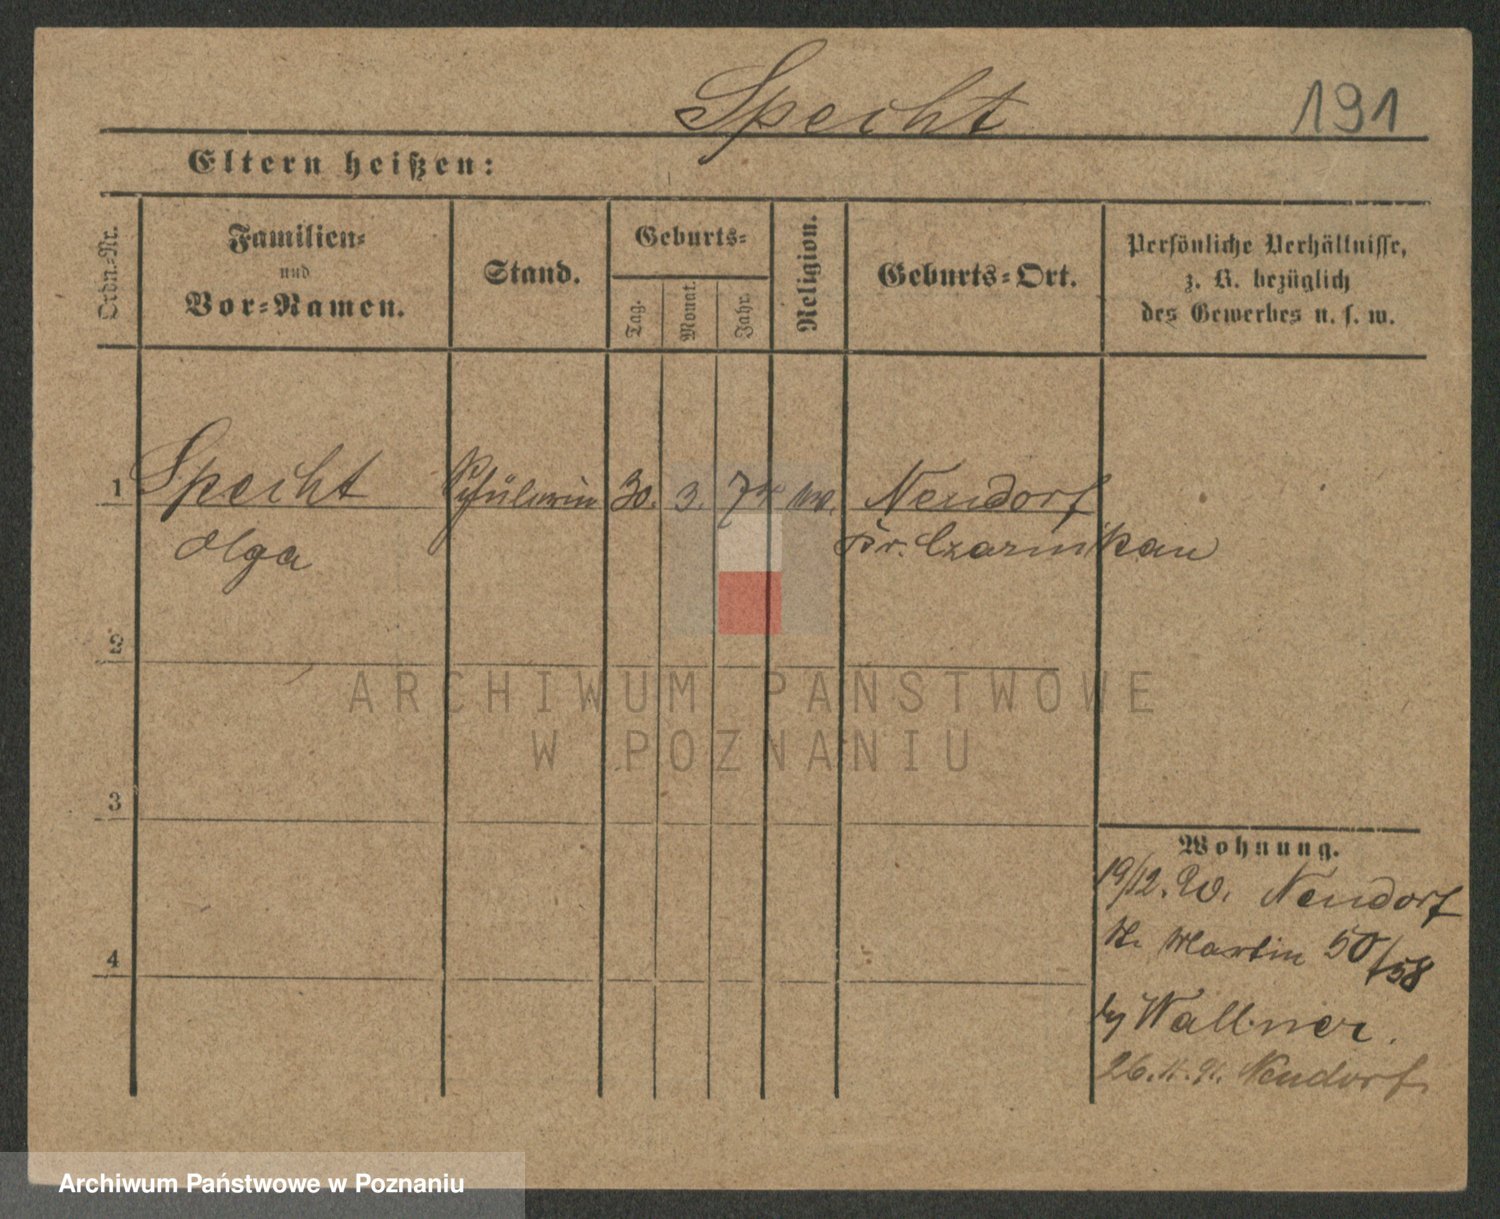 Specht
191
Eltern heißen:
Ordn.-Nr.
Familien-
und
Vor-Namen.
Stand.
Geburts-
Tag.
Monat.
Jahr.
Religion.
Geburts-Ort.
Persönliche Verhältnisse,
z. B. bezüglich
des Gewerbes u. s. w.
1 Specht Schülerin 30. 3. 74 Neudorf
Olga Kr. Czarnikau
2
3
4
Wohnung.
19/12. W. Neudorf
St. Martin 50/58
by Wallner.
26. 11. 91. Neudorf
ARCHIWUM PAŃSTWOWE
W POZNANIU
Archiwum Państwowe w Poznaniu